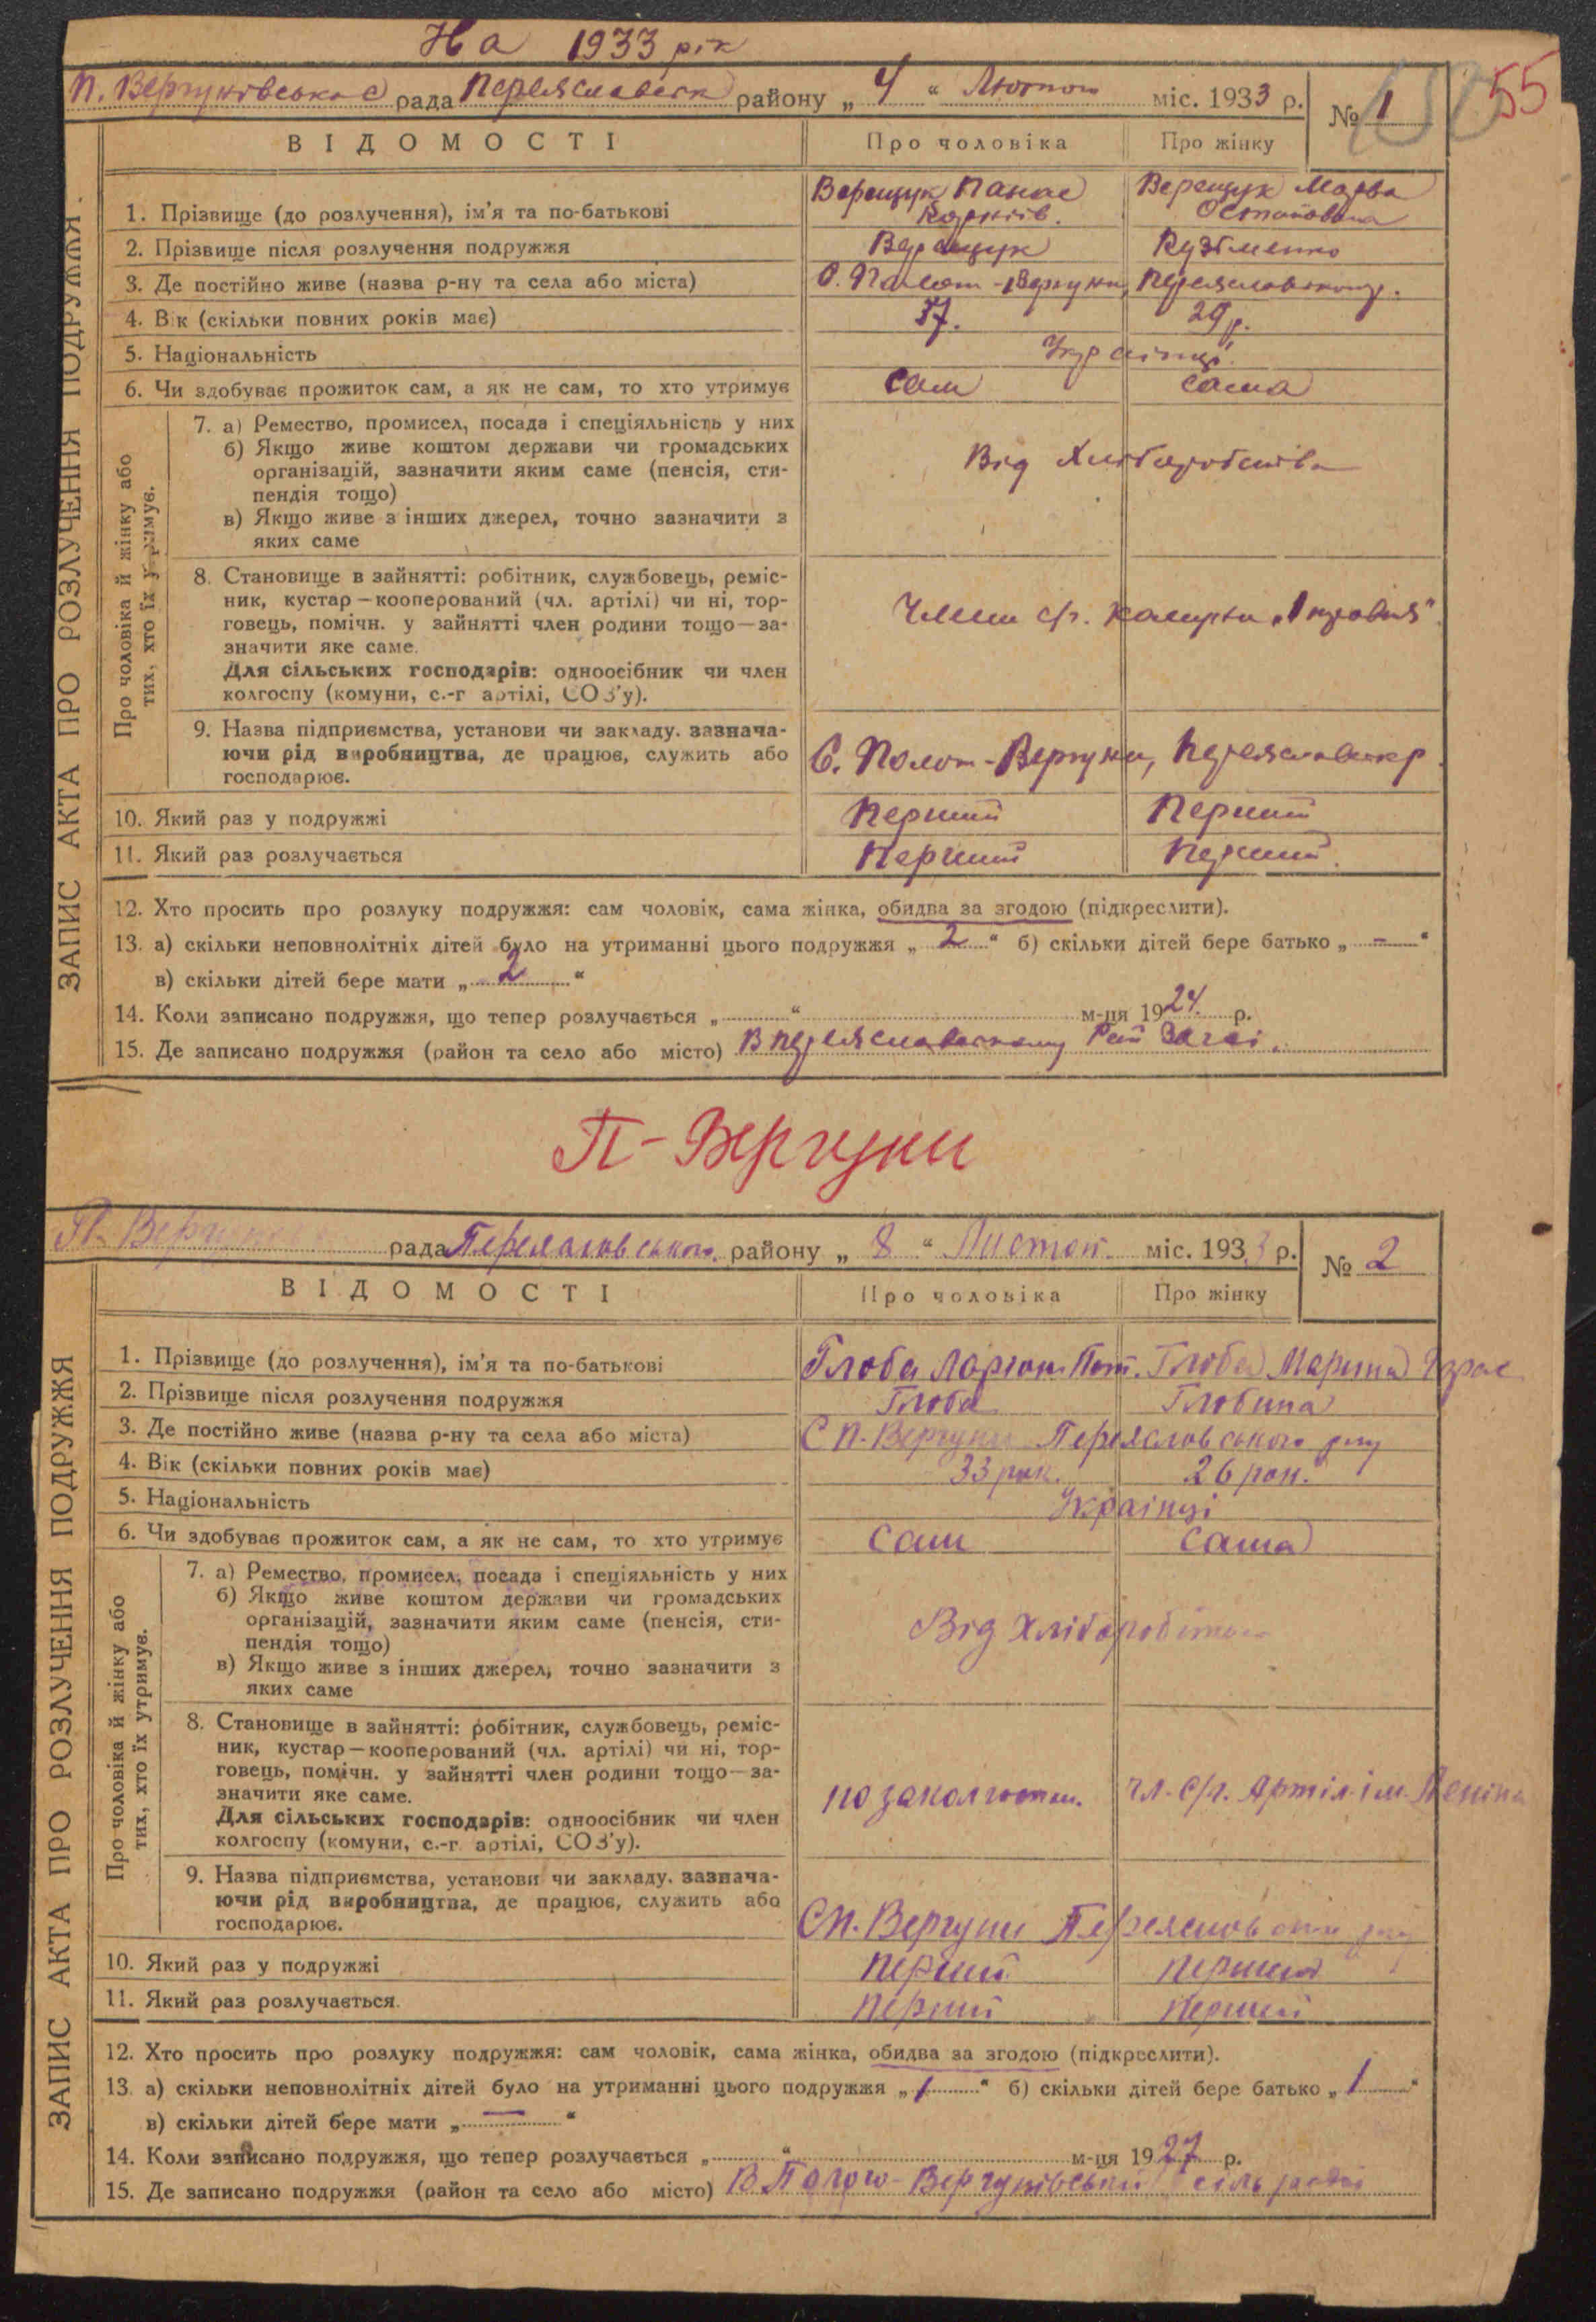 На 1933 рік
55
П. Вергунівська рада Переяславськ району „ 4 “ Лютого міс. 1933 р.
№ 1
ВІДОМОСТІ
Про чоловіка
Про жінку
ЗАПИС АКТА ПРО РОЗЛУЧЕННЯ ПОДРУЖЖЯ.
1. Прізвище (до розлучення), ім'я та по-батькові
Верещук Панас
Верещук Марва
Остаповна
2. Прізвище після розлучення подружжя
Верещук
Кузьменко
3. Де постійно живе (назва р-ну та села або міста)
С. Полог-Вергуни, Переяславського р.
4. Вік (скільки повних років має)
37.
29 р.
5. Національність
Українці
6. Чи здобуває прожиток сам, а як не сам, то хто утримує
сам
сама
Про чоловіка й жінку або
тих, хто їх утримує.
7. а) Ремество, промисел, посада і спеціяльність у них
б) Якщо живе коштом держави чи громадських
організацій, зазначити яким саме (пенсія, сти-
пендія тощо)
в) Якщо живе з інших джерел, точно зазначити з
яких саме
Від Хліборобства
8. Становище в зайнятті: робітник, службовець, реміс-
ник, кустар—кооперований (чл. артілі) чи ні, тор-
говець, помічн. у зайнятті член родини тощо—за-
значити яке саме.
Для сільських господарів: одноосібник чи член
колгоспу (комуни, с.-г артілі, СОЗ'у).
Члени с/г. Комуни „1 травня“
9. Назва підприємства, установи чи закладу. зазнача-
ючи рід виробництва, де працює, служить або
господарює.
С. Полог-Вергуни, Переяславськ р
10. Який раз у подружжі
Перший
Перший
11. Який раз розлучається
Перший
Перший.
12. Хто просить про розлуку подружжя: сам чоловік, сама жінка, обидва за згодою (підкреслити).
13. а) скільки неповнолітніх дітей було на утриманні цього подружжя „ 2 “ б) скільки дітей бере батько „ – “
в) скільки дітей бере мати „ 2 “
14. Коли записано подружжя, що тепер розлучається „ “ м-ця 1924 р.
15. Де записано подружжя (район та село або місто) В Переяславському Рай Загсі.
П-Вергуни
П. Вергун рада Переяславського району „ 8 “ Листоп. міс. 1933 р.
№ 2
ВІДОМОСТІ
Про чоловіка
Про жінку
ЗАПИС АКТА ПРО РОЗЛУЧЕННЯ ПОДРУЖЖЯ
1. Прізвище (до розлучення), ім'я та по-батькові
Глоба Ларион Пот.
Глоба Марина
2. Прізвище після розлучення подружжя
Глоба
Глобина
3. Де постійно живе (назва р-ну та села або міста)
С П-Вергуни Переяславського р-ну
4. Вік (скільки повних років має)
33 рок.
26 рок.
5. Національність
Українці
6. Чи здобуває прожиток сам, а як не сам, то хто утримує
Сам
Сама
Про чоловіка й жінку або
тих, хто їх утримує.
7. а) Ремество, промисел, посада і спеціяльність у них
б) Якщо живе коштом держави чи громадських
організацій, зазначити яким саме (пенсія, сти-
пендія тощо)
в) Якщо живе з інших джерел, точно зазначити з
яких саме
Від Хліборобства
8. Становище в зайнятті: робітник, службовець, реміс-
ник, кустар—кооперований (чл. артілі) чи ні, тор-
говець, помічн. у зайнятті член родини тощо—за-
значити яке саме.
Для сільських господарів: одноосібник чи член
колгоспу (комуни, с.-г. артілі, СОЗ'у).
чл. С/г. Артіл. ім. Леніна
9. Назва підприємства, установи чи закладу. зазнача-
ючи рід виробництва, де працює, служить або
господарює.
С П. Вергуни
10. Який раз у подружжі
Перший
Перший
11. Який раз розлучається.
Перший
Перший
12. Хто просить про розлуку подружжя: сам чоловік, сама жінка, обидва за згодою (підкреслити).
13. а) скільки неповнолітніх дітей було на утриманні цього подружжя „ 1 “ б) скільки дітей бере батько „ 1 “
в) скільки дітей бере мати „ — “
14. Коли записано подружжя, що тепер розлучається „ “ м-ця 1927 р.
15. Де записано подружжя (район та село або місто) В Полого-Вергунівській сільраді